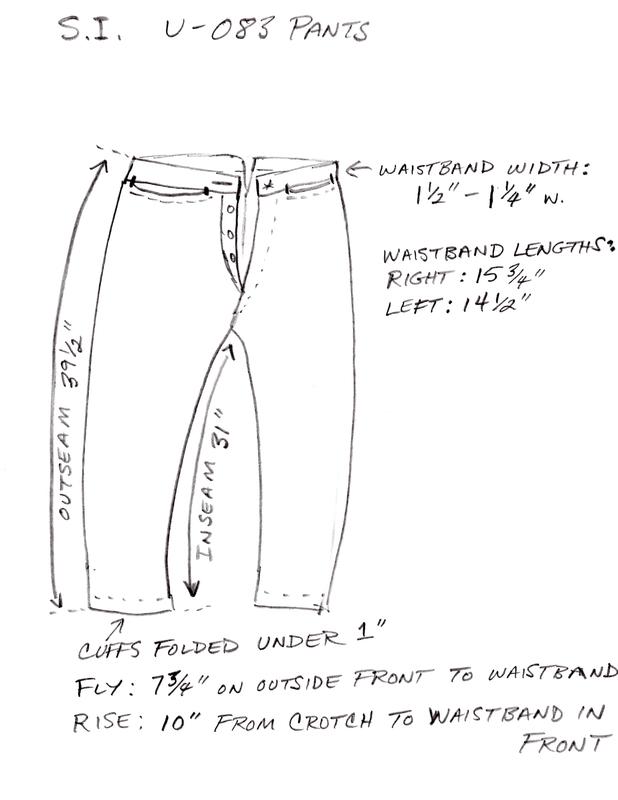 S.I. U-083 PANTS
← WAISTBAND WIDTH:
1 1/2" - 1 1/4" W.
WAISTBAND LENGTHS:
RIGHT: 15 3/4"
LEFT: 14 1/2"
OUTSEAM 39 1/2"
INSEAM 31"
CUFFS FOLDED UNDER 1"
FLY: 7 3/4" ON OUTSIDE FRONT TO WAISTBAND
RISE: 10" FROM CROTCH TO WAISTBAND IN
FRONT